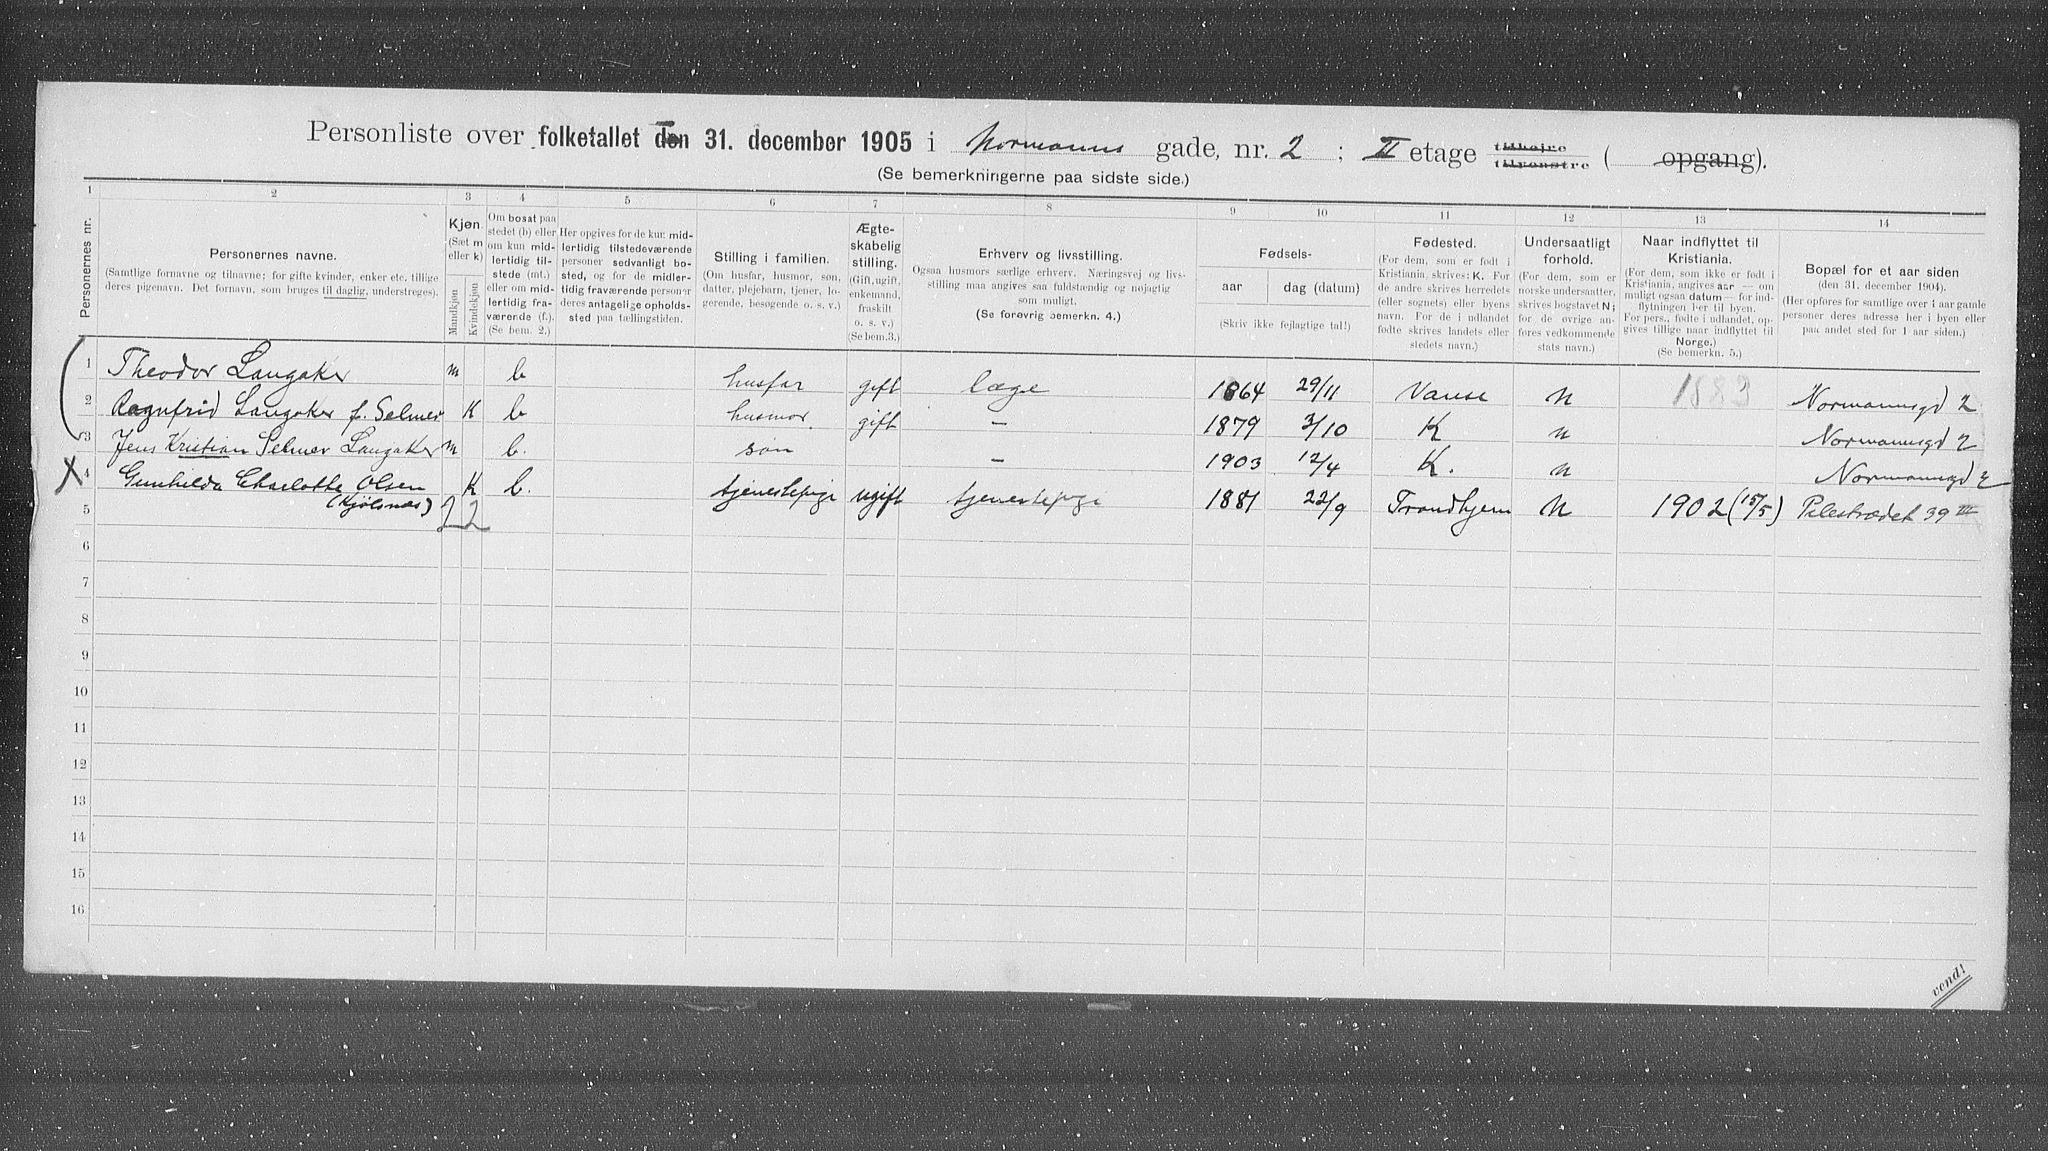 Personliste over folketallet den 31. december 1905 i Normanns gade, nr. 2 ; II etage tilhøjre tilvenstre ( opgang).
(Se bemerkningerne paa sidste side.)
1 2 3 4 5 6 7 8 9 10 11 12 13 14
Personernes nr.
Personernes navne.
(Samtlige fornavne og tilnavne; for gifte kvinder, enker etc. tillige
deres pigenavn. Det fornavn, som bruges til daglig, understreges).
Kjøn.
(Sæt m
eller k)
Mandkjøn
Kvindekjøn
Om bosat paa
stedet (b) eller
om kun mid-
lertidig til-
stede (mt.)
eller om mid-
lertidig fra-
værende (f.).
(Se bem. 2.)
Her opgives for de kun mid-
lertidig tilstedeværende
personer sedvanligt bo-
sted, og for de midler-
tidig fraværende personer
deres antagelige opholds-
sted paa tællingstiden.
Stilling i familien.
(Om husfar, husmor, søn,
datter, plejebarn, tjener, lo-
gerende, besøgende o. s. v.)
Ægte-
skabelig
stilling.
(Gift, ugift,
enkemand,
fraskilt
o. s. v.)
(Se bem.3.)
Erhverv og livsstilling.
Ogsaa husmors særlige erhverv. Næringsvej og livs-
stilling maa angives saa fuldstændig og nøjagtig
som muligt.
(Se forøvrig bemerkn. 4.)
Fødsels-
aar dag (datum)
(Skriv ikke fejlagtige tal!)
Fødested.
(For dem, som er født i
Kristiania, skrives: K. For
de andre skrives herredets
(eller sognets) eller byens
navn. For de i udlandet
fødte skrives landets eller
stedets navn.)
Undersaatligt
forhold.
(For dem, som er
norske undersaatter,
skrives bogstavet N;
for de øvrige an-
føres vedkommende
stats navn.)
Naar indflyttet til
Kristiania.
(For dem, som ikke er født i
Kristiania, angives aar — om
muligt ogsaa datum — for ind-
flytningen her til byen.
For pers., fødte i udlandet, op-
gives tillige naar indflyttet til
Norge.)
(Se bemerkn. 5.)
Bopæl for et aar siden
(den 31. december 1904).
(Her opføres for samtlige over 1 aar gamle
personer deres adresse her i byen eller
paa andet sted for 1 aar siden.)
1 Theodor Langaker m b husfar gift læge 1864 29/11 Vanse N 1883 Normannsgd 2
2 Ragnfrid Langaker f. Selmer K b husmor gift — 1879 3/10 K n Normannsgd 2
3 Jens Kristian Selmer Langaker m b. søn — 1903 12/4 K. n Normannsgd 2
X 4 Gunhilda Charlotte Olsen K b. tjenestepige ugift tjenestepige 1881 22/9 Trondhjem N 1902 (15/5) Pilestrædet 39 III
5 (Kjølsnæs) 2 2
6
7
8
9
10
11
12
13
14
15
16
vend!